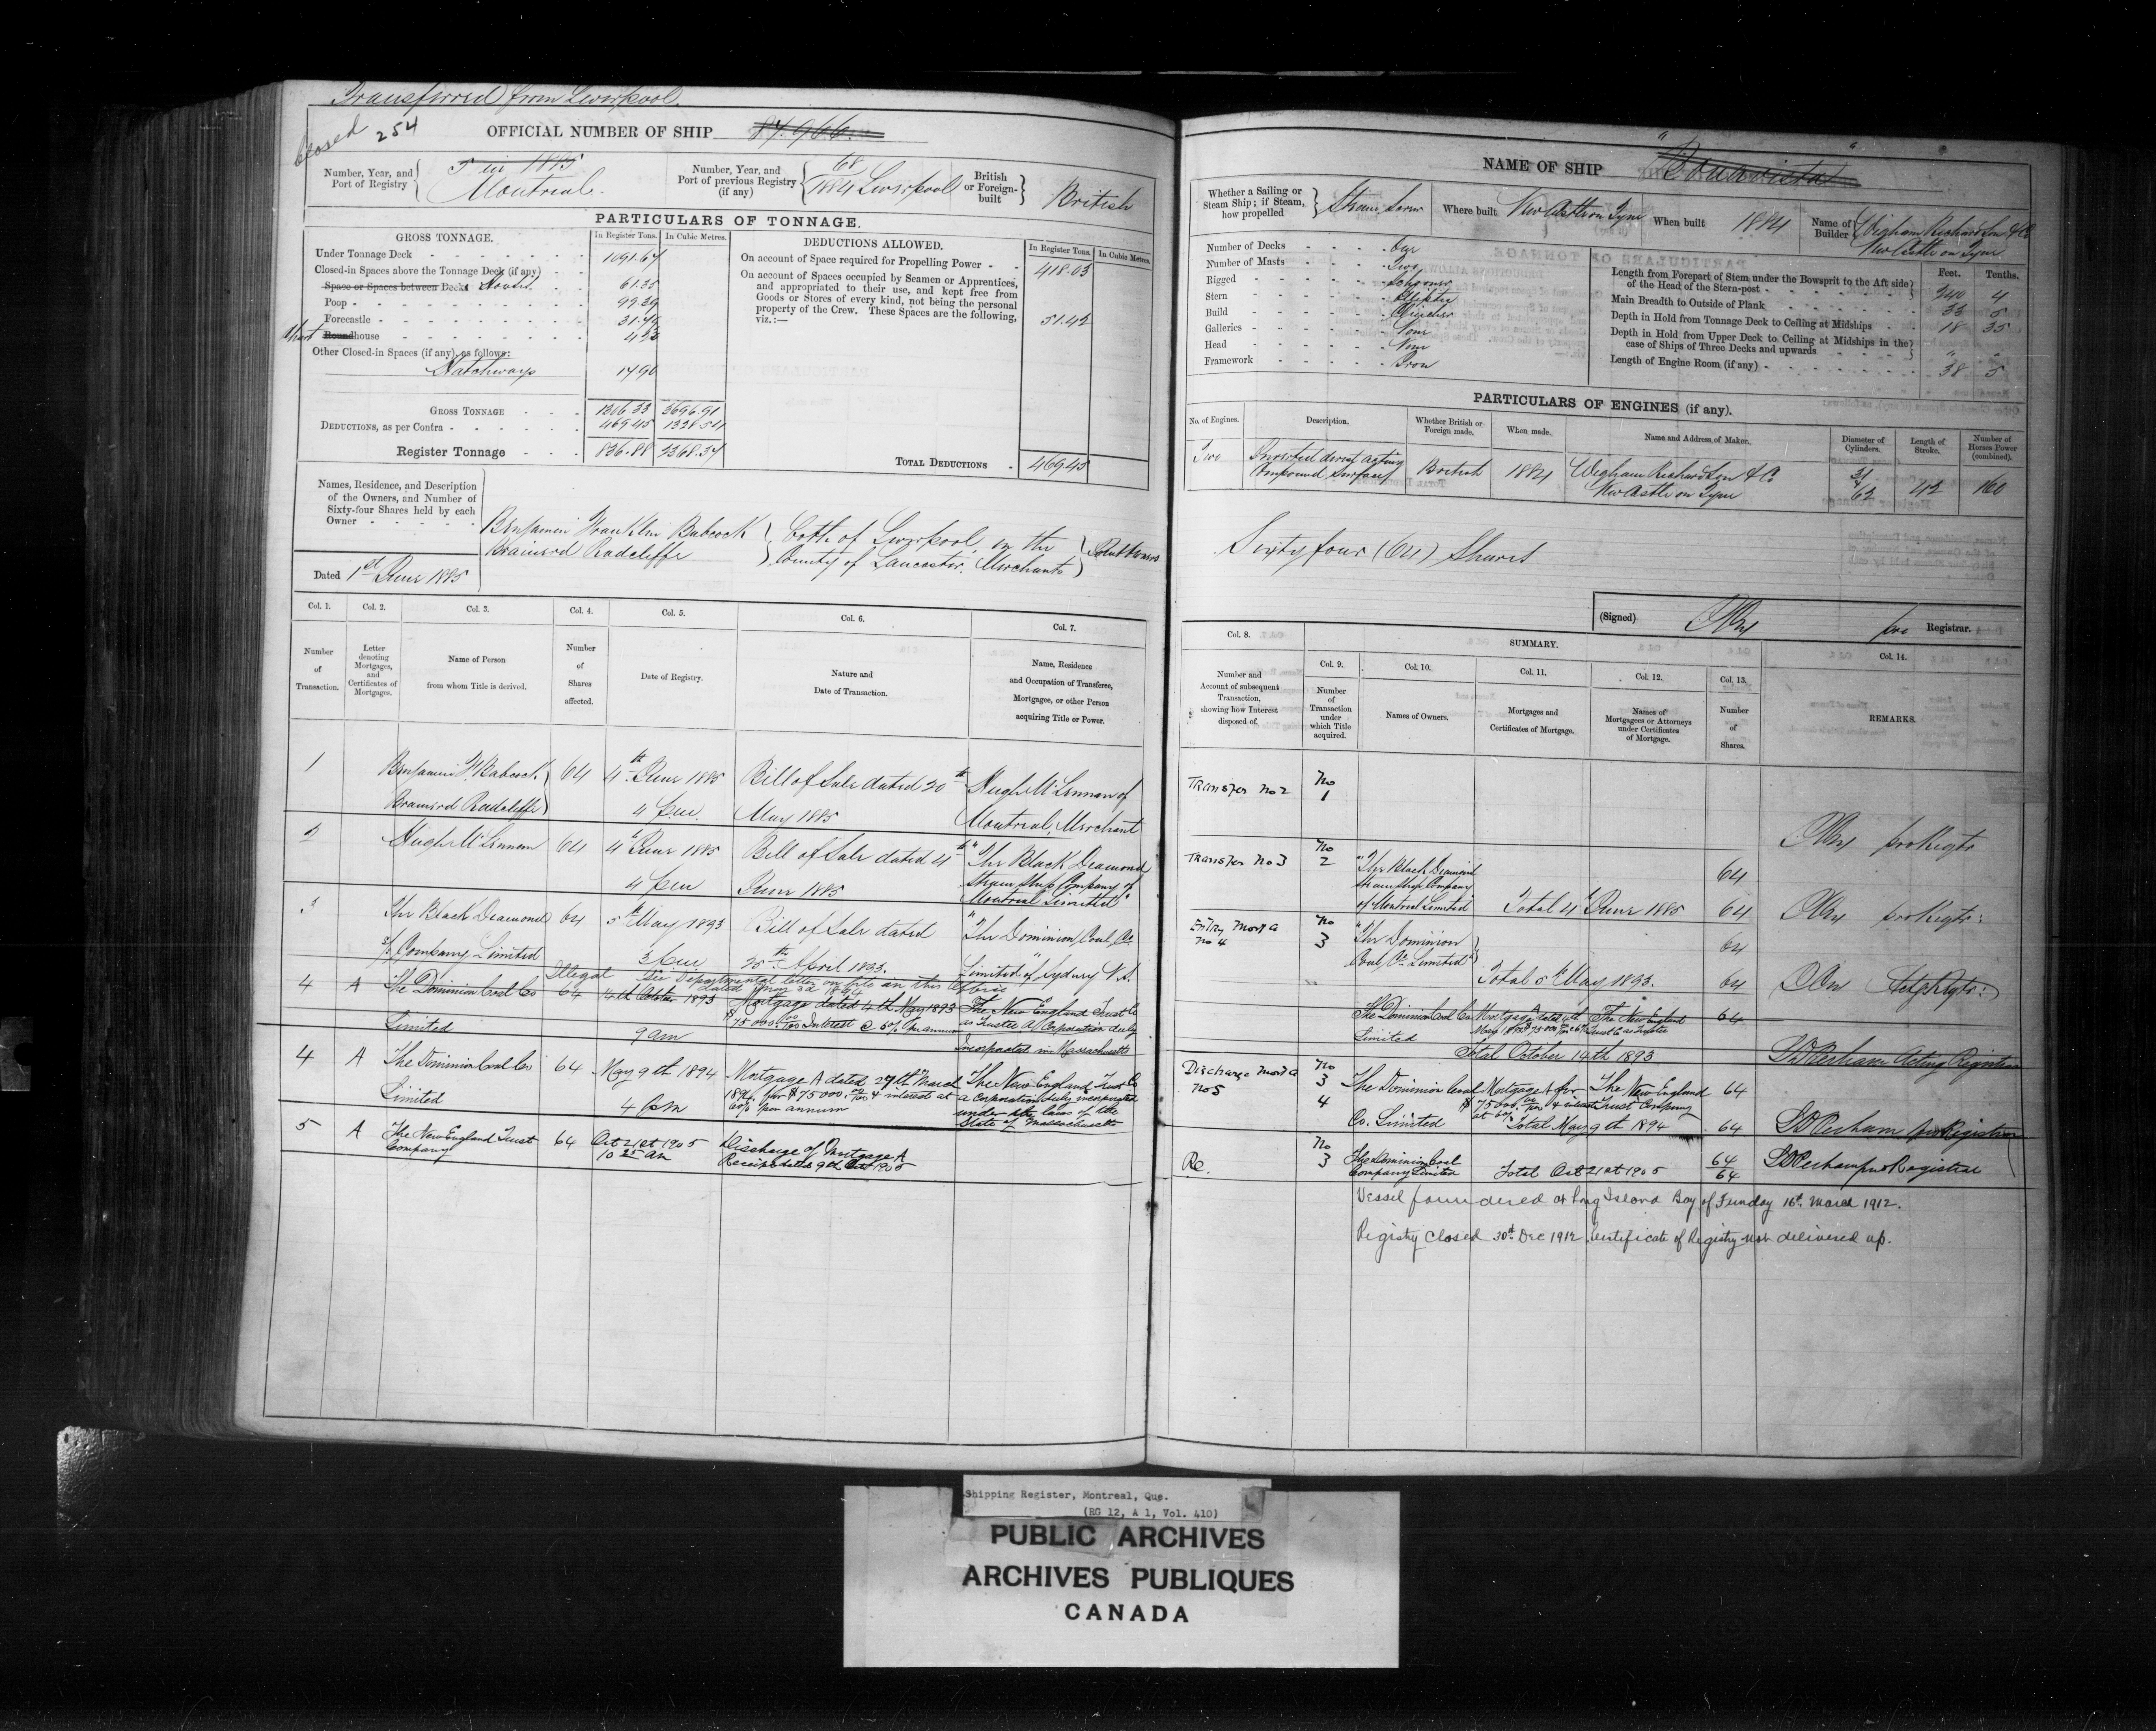 Transferred from Liverpool.
Closed 254
OFFICIAL NUMBER OF SHIP 87.966.
Number, Year, and Port of Registry
5 in 1885
Montreal.
Number, Year, and Port of previous Registry (if any)
68
1884 Liverpool
British or Foreign-built
British
PARTICULARS OF TONNAGE.
GROSS TONNAGE.
In Register Tons.
In Cubic Metres.
Under Tonnage Deck
1091.67
Closed-in Spaces above the Tonnage Deck (if any)
Space or Spaces between Decks Houses
61.35
Poop
99.39
Forecastle
31.76
Roundhouse
Other Closed-in Spaces (if any), as follows:
Hatchways
17.90
GROSS TONNAGE
1306.33 3696.91
DEDUCTIONS, as per Contra
469.45 1328.54
Register Tonnage
836.88 2368.37
DEDUCTIONS ALLOWED.
In Register Tons.
In Cubic Metres.
On account of Space required for Propelling Power
418.03
On account of Spaces occupied by Seamen or Apprentices,
and appropriated to their use, and kept free from
Goods or Stores of every kind, not being the personal
property of the Crew. These Spaces are the following,
viz.:—
51.42
TOTAL DEDUCTIONS
469.45
Names, Residence, and Description
of the Owners, and Number of
Sixty-four Shares held by each
Owner
Dated 1st June 1885
Benjamin Franklin Babcock
Brainerd Radcliffe
both of Liverpool in the
County of Lancaster. Merchants
Joint Owners
Col. 1.
Number of Transaction.
Col. 2.
Letter denoting Mortgages, and Certificates of Mortgages.
Col. 3.
Name of Person from whom Title is derived.
Col. 4.
Number of Shares affected.
Col. 5.
Date of Registry.
Col. 6.
Nature and Date of Transaction.
Col. 7.
Name, Residence and Occupation of Transferee, Mortgagee, or other Person acquiring Title or Power.
1
Benjamin F. Babcock
Brainerd Radcliffe
64
4th June 1885
4 p.m.
Bill of Sale dated 20th
May 1885
Hugh McLennan of
Montreal, Merchant
2
Hugh McLennan
64
4th June 1885
4 pm
Bill of Sale dated 4th
June 1885
"The Black Diamond
Steam Ship Company of
Montreal Limited"
3
The Black Diamond
S/S Company Limited
64
5th May 1893
3 pm
Bill of Sale dated
25th April 1893.
"The Dominion Coal Co.
Limited" of Sydney N.S.
Illegal See Departmental letter on file in this Office
4
A
The Dominion Coal Co
Limited
64
14th October 1893
9 am
Mortgage dated 4th May 1893
$75000 00/100 Interest @ 6% per annum
The New England Trust Co
as Trustee, A Corporation duly
Incorporated in Massachusetts
4
A
The Dominion Coal Co
Limited
64
May 9th 1894
4 pm
Mortgage A dated 27th March
1894, for $75000. 00/100 & interest at
6% per annum
The New England Trust Co
a Corporation duly incorporated
under the laws of the
State of Massachusetts
5
A
The New England Trust
Company
64
Oct 21st 1905
10 25 am
Discharge of Mortgage A
Receipt dated 9th Oct 1905
NAME OF SHIP "Bonavista"
Whether a Sailing or Steam Ship; if Steam, how propelled
Steam, Screw
Where built
Newcastle on Tyne
When built
1884
Name of Builder
Wigham Richardson & Co
Newcastle on Tyne
Number of Decks
One
Number of Masts
Two
Rigged
Schooner
Stern
Elliptic
Build
Clincher
Galleries
None
Head
None
Framework
Iron
Feet. Tenths.
Length from Forepart of Stem under the Bowsprit to the Aft side of the Head of the Stern-post
240 4
Main Breadth to Outside of Plank
33 5
Depth in Hold from Tonnage Deck to Ceiling at Midships
18 35
Depth in Hold from Upper Deck to Ceiling at Midships in the case of Ships of Three Decks and upwards
" "
Length of Engine Room (if any)
38 5
PARTICULARS OF ENGINES (if any).
No. of Engines.
Description.
Whether British or Foreign made.
When made.
Name and Address of Maker.
Diameter of Cylinders.
Length of Stroke.
Number of Horses Power (combined).
Two
Inverted direct acting
Compound Surface
British
1884
Wigham Richardson & Co
Newcastle on Tyne
31
62
42
160
Sixty four (64) Shares
(Signed)
pro Registrar.
Col. 8.
Number and Account of subsequent Transaction, showing how Interest disposed of.
SUMMARY.
Col. 9.
Number of Transaction under which Title acquired.
Col. 10.
Names of Owners.
Col. 11.
Mortgages and Certificates of Mortgage.
Col. 12.
Names of Mortgagees or Attorneys under Certificates of Mortgage.
Col. 13.
Number of Shares.
Col. 14.
REMARKS.
Transfer No 2
No 1
pro Regtr
Transfer No 3
No 2
"The Black Diamond
Steam Ship Company
of Montreal Limited"
64
Total 4th June 1885
64
pro Regtr:
Entry Mortg A
No 4
No 3
"The Dominion
Coal Co. Limited"
64
Total 5th May 1893.
64
Actg Regtr:
The Dominion Coal Co
Limited
The New England
Trust Co as Trustee
64
Total October 14th 1893
Acting Registrar
Discharge Mortg A
No 5
No 3
4
The Dominion Coal
Co. Limited
Mortgage A for
$75000. 00/100 & interest
at 6%
The New England
Trust Company
64
Total May 9th 1894
64
pro Registrar
Re.
No 3
The Dominion Coal
Company Limited
Total Oct 21st 1905
64
64
pro Registrar
Vessel foundered at Long Island Bay of Fundy 16th March 1912.
Registry closed 30th Dec 1912. Certificate of Registry not delivered up.
Shipping Register, Montreal, Que.
(RG 12, A 1, Vol. 410)
PUBLIC ARCHIVES
ARCHIVES PUBLIQUES
CANADA